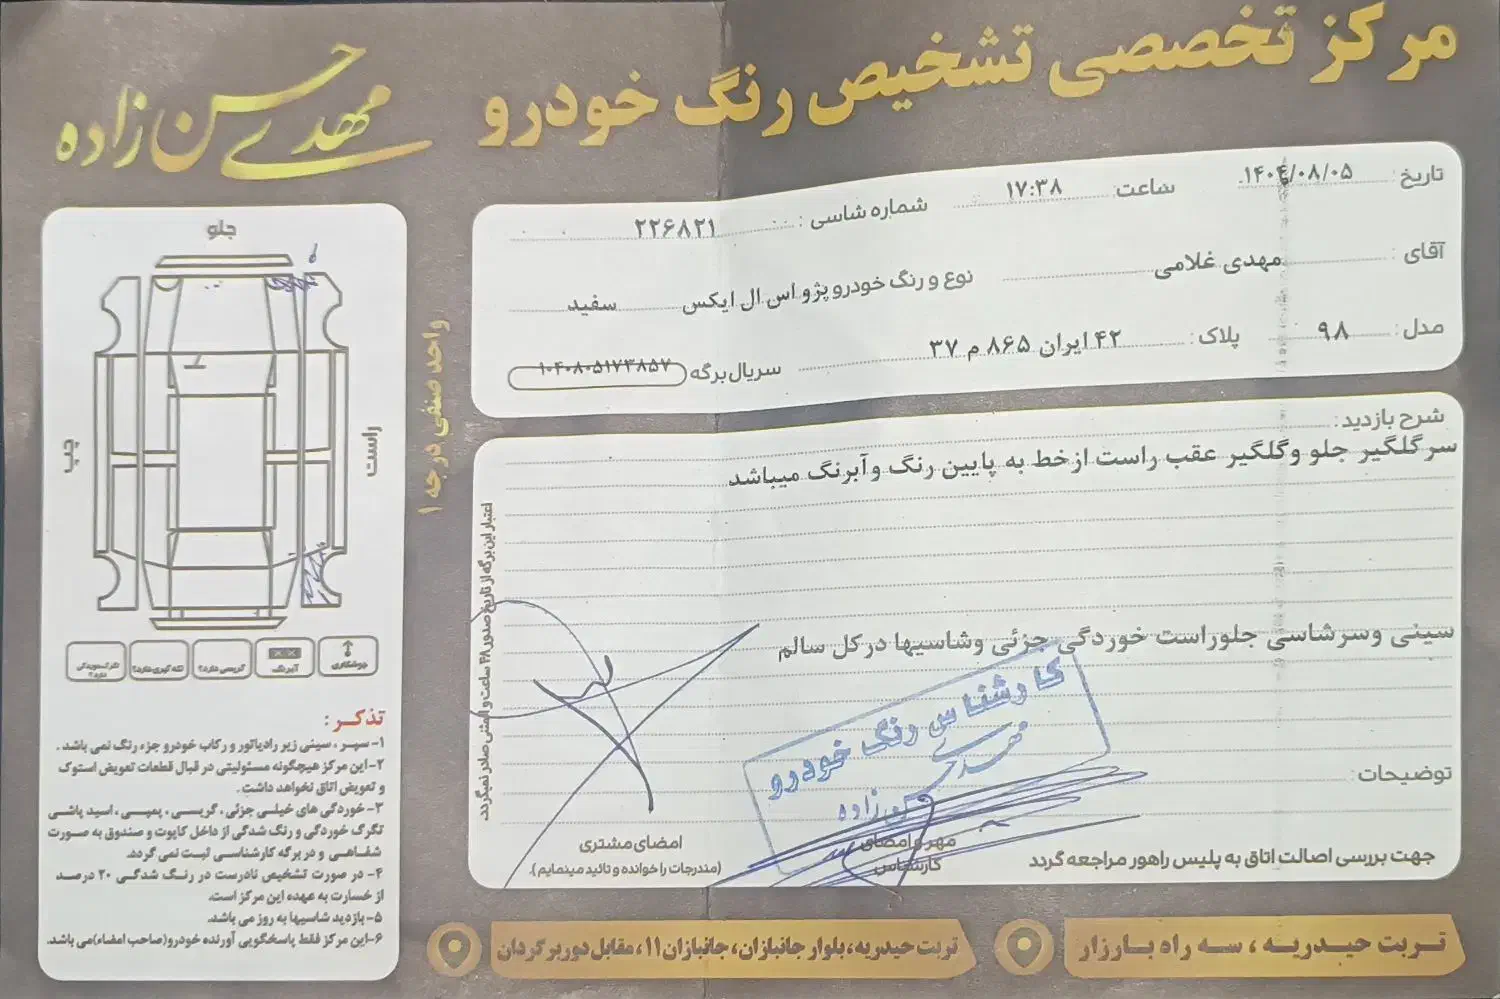 مرکز تخصصی تشخیص رنگ خودرو
مهدی حسن زاده
تاریخ: ۱۴۰۴/۰۸/۰۵ ساعت: ۱۷:۳۸ شماره شاسی: ۲۲۶۸۲۱
آقای: مهدی غلامی نوع و رنگ خودرو پژو اس ال ایکس سفید
مدل: ۹۸ پلاک: ۴۲ ایران ۸۶۵ م ۳۷ سریال برگه ۱۰۴۰۸۰۵۱۷۳۸۵۷
شرح بازدید:
سر گلگیر جلو و گلگیر عقب راست از خط به پایین رنگ و آبرنگ میباشد
سینی و سرشاسی جلو راست خوردگی جزئی و شاسیها در کل سالم
کارشناس رنگ خودرو
مهدی حسن زاده
توضیحات:
جهت بررسی اصالت اتاق به پلیس راهور مراجعه گردد
مهر و امضای
کارشناس
امضای مشتری
(مندرجات را خوانده و تائید مینمایم).
اعتبار این برگه از تاریخ صدور ۴۸ ساعت و المثنی صادر نمیگردد.
واحد صنفی درجه ۱
جلو
چپ
راست
جوشکاری
آبرنگ
گریسی دارد؟
لکه گیری دارد؟
تذکر:
۱- سپر، سینی زیر رادیاتور و رکاب خودرو جزء رنگ نمی باشد.
۲- این مرکز هیچگونه مسئولیتی در قبال قطعات تعویض استوک
و تعویض اتاق نخواهد داشت.
۳- خوردگی های خیلی جزئی، گریسی، پمپی، اسید پاشی
تگرگ خوردگی و رنگ شدگی از داخل کاپوت و صندوق به صورت
شفاهی و در برگه کارشناسی ثبت نمی گردد.
۴- در صورت تشخیص نادرست در رنگ شدگی ۲۰ درصد
از خسارت به عهده این مرکز است.
۵- بازدید شاسیها به روز می باشد.
۶- این مرکز فقط پاسخگویی آورنده خودرو(صاحب امضاء)می باشد.
تربت حیدریه، سه راه بارزار
تربت حیدریه، بلوار جانبازان، جانبازان ۱۱، مقابل دوربرگردان